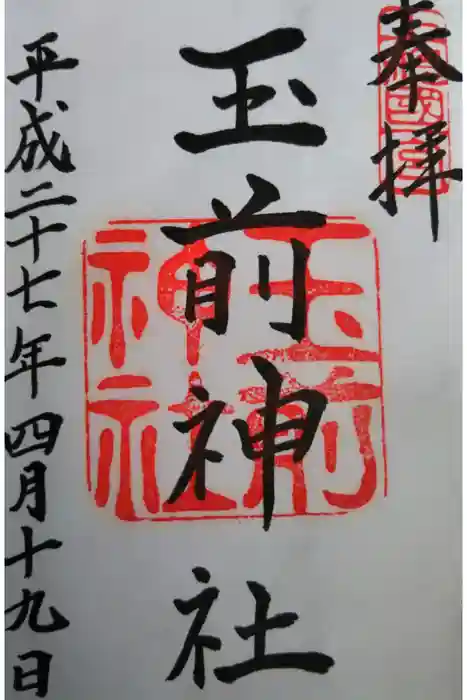 奉拝
玉前神社
玉前
神社
平成二十七年四月十九日